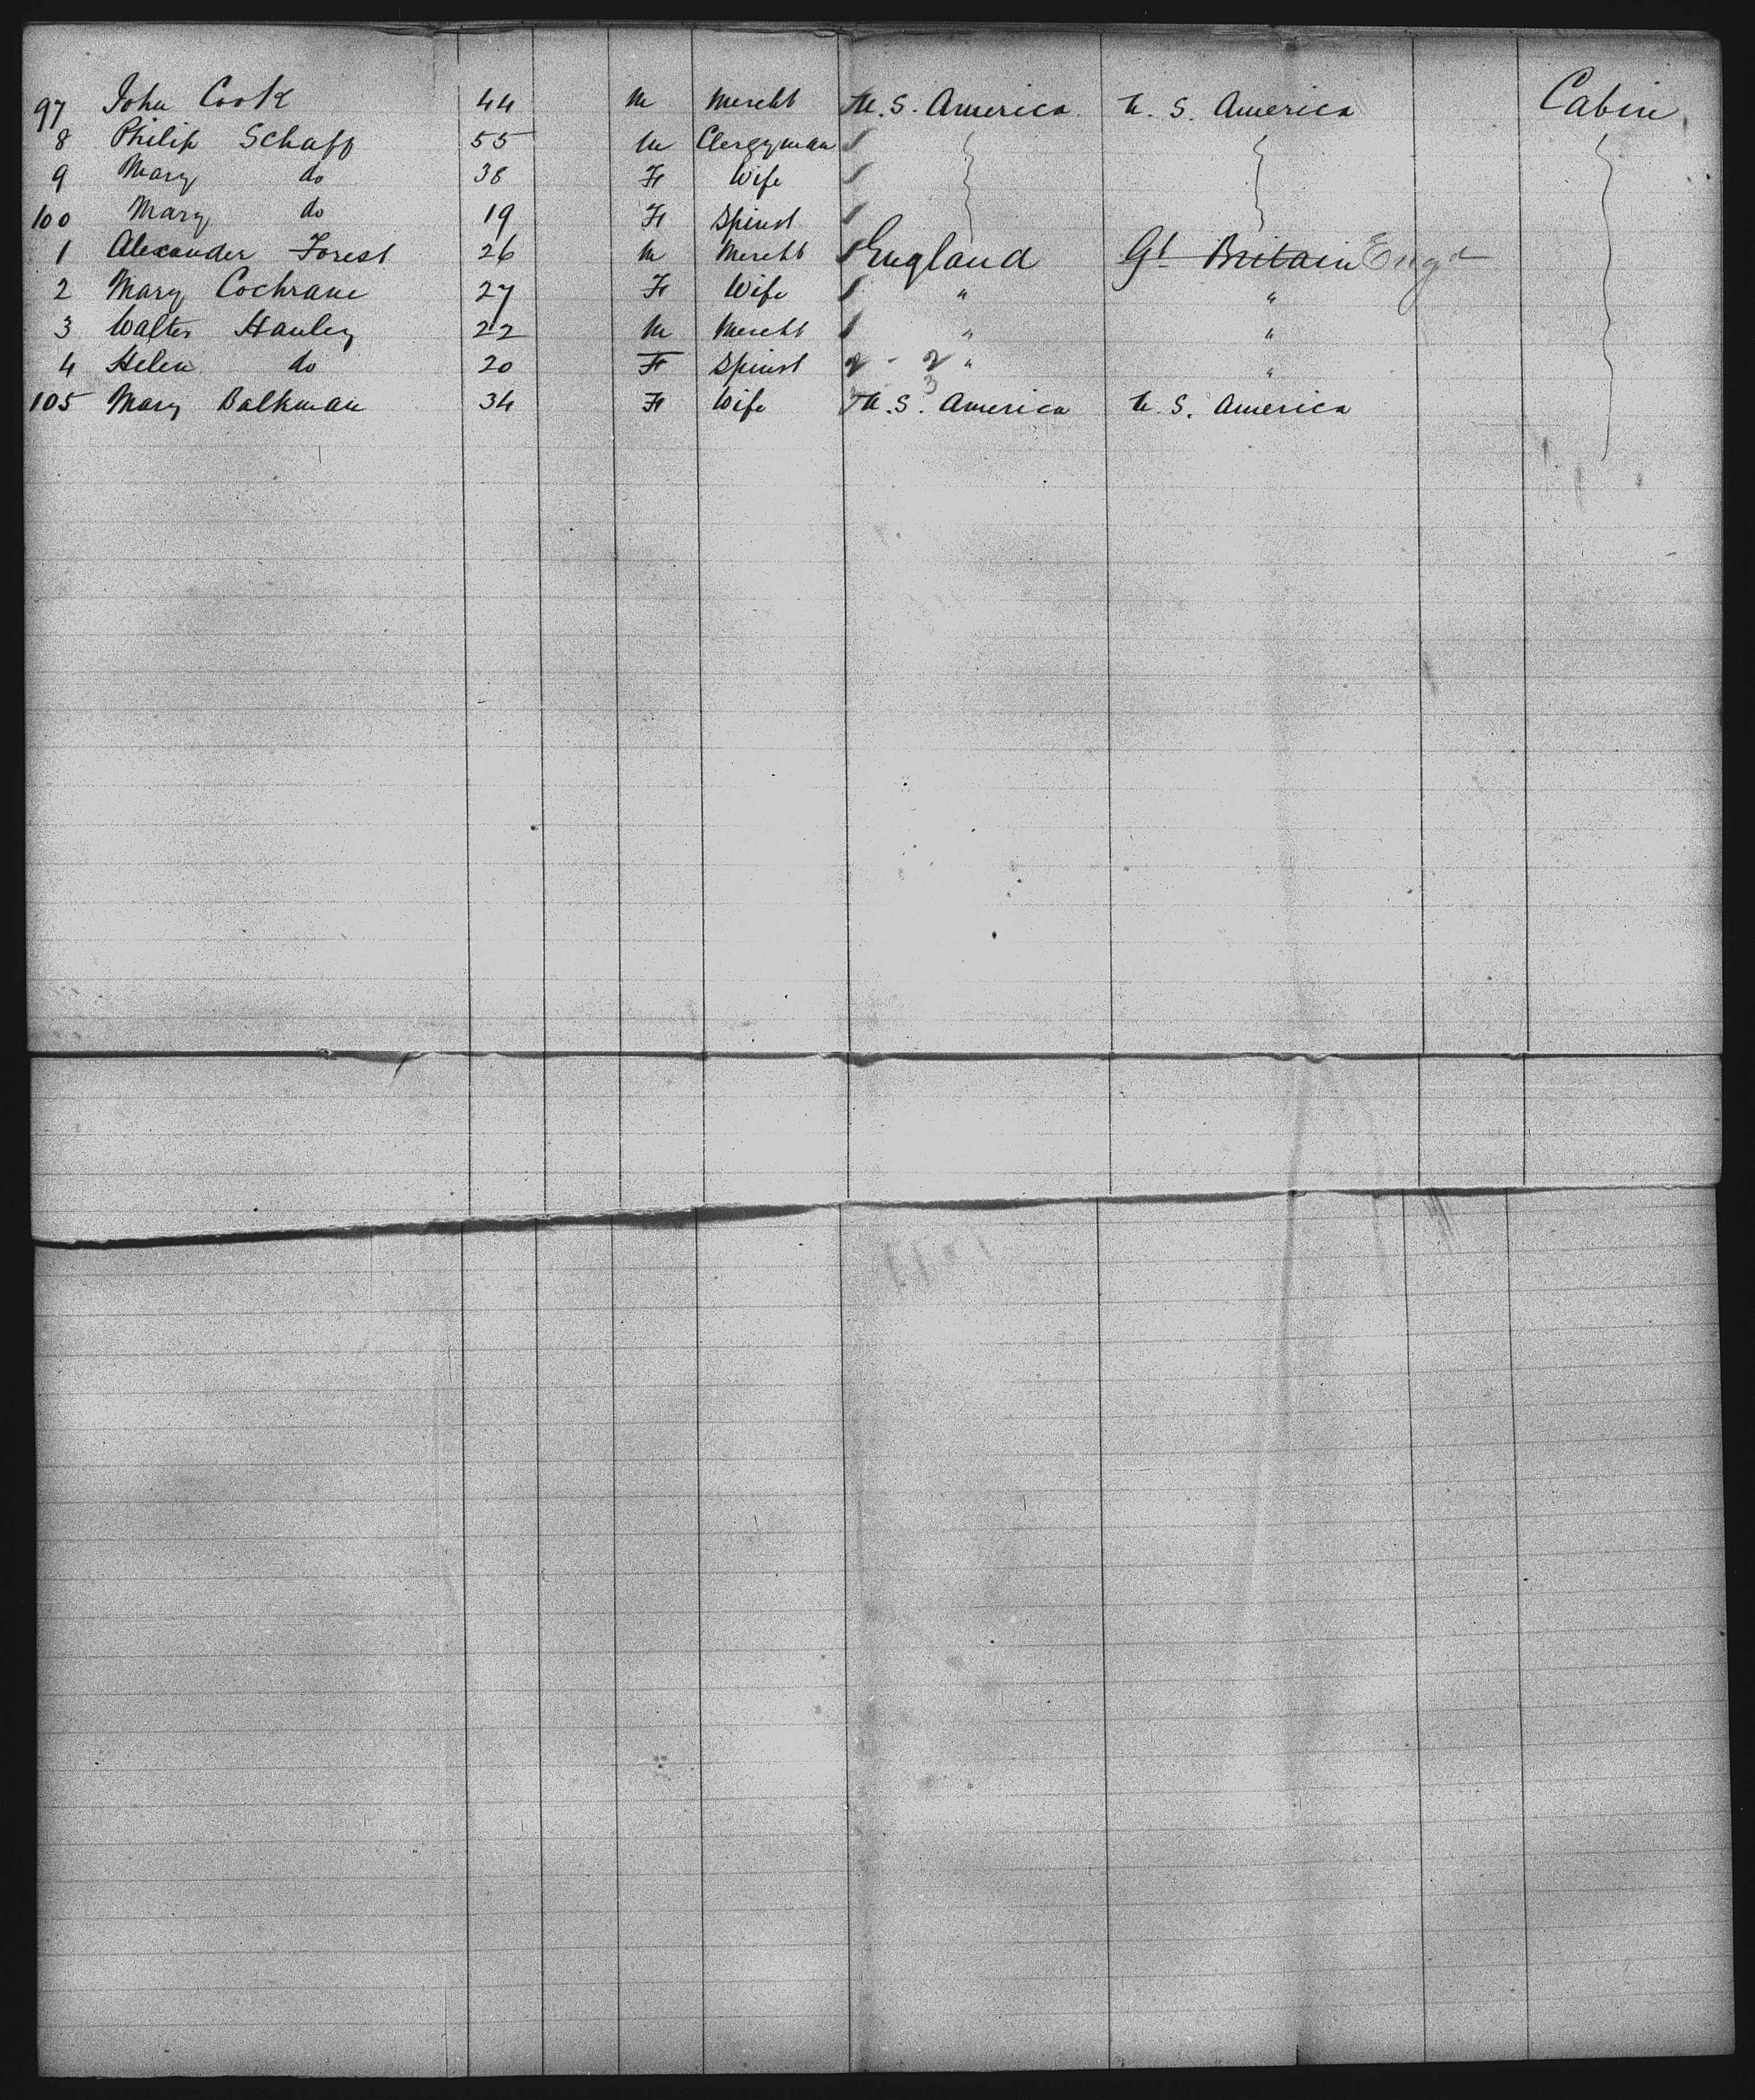 97 John Cook 44 M Mercht U. S. America U. S. America Cabin
8 Philip Schaff 55 M Clergyman
9 Mary do 38 F Wife
100 Mary do 19 F Spinst
1 Alexander Forest 26 M Mercht England Gt Britain Engd
2 Mary Cochrane 27 F Wife " "
3 Walter Hanley 22 M Mercht " "
4 Helen do 20 F Spinst 2 - 2 " "
105 Mary Balkman 34 F Wife U. S. America U. S. America